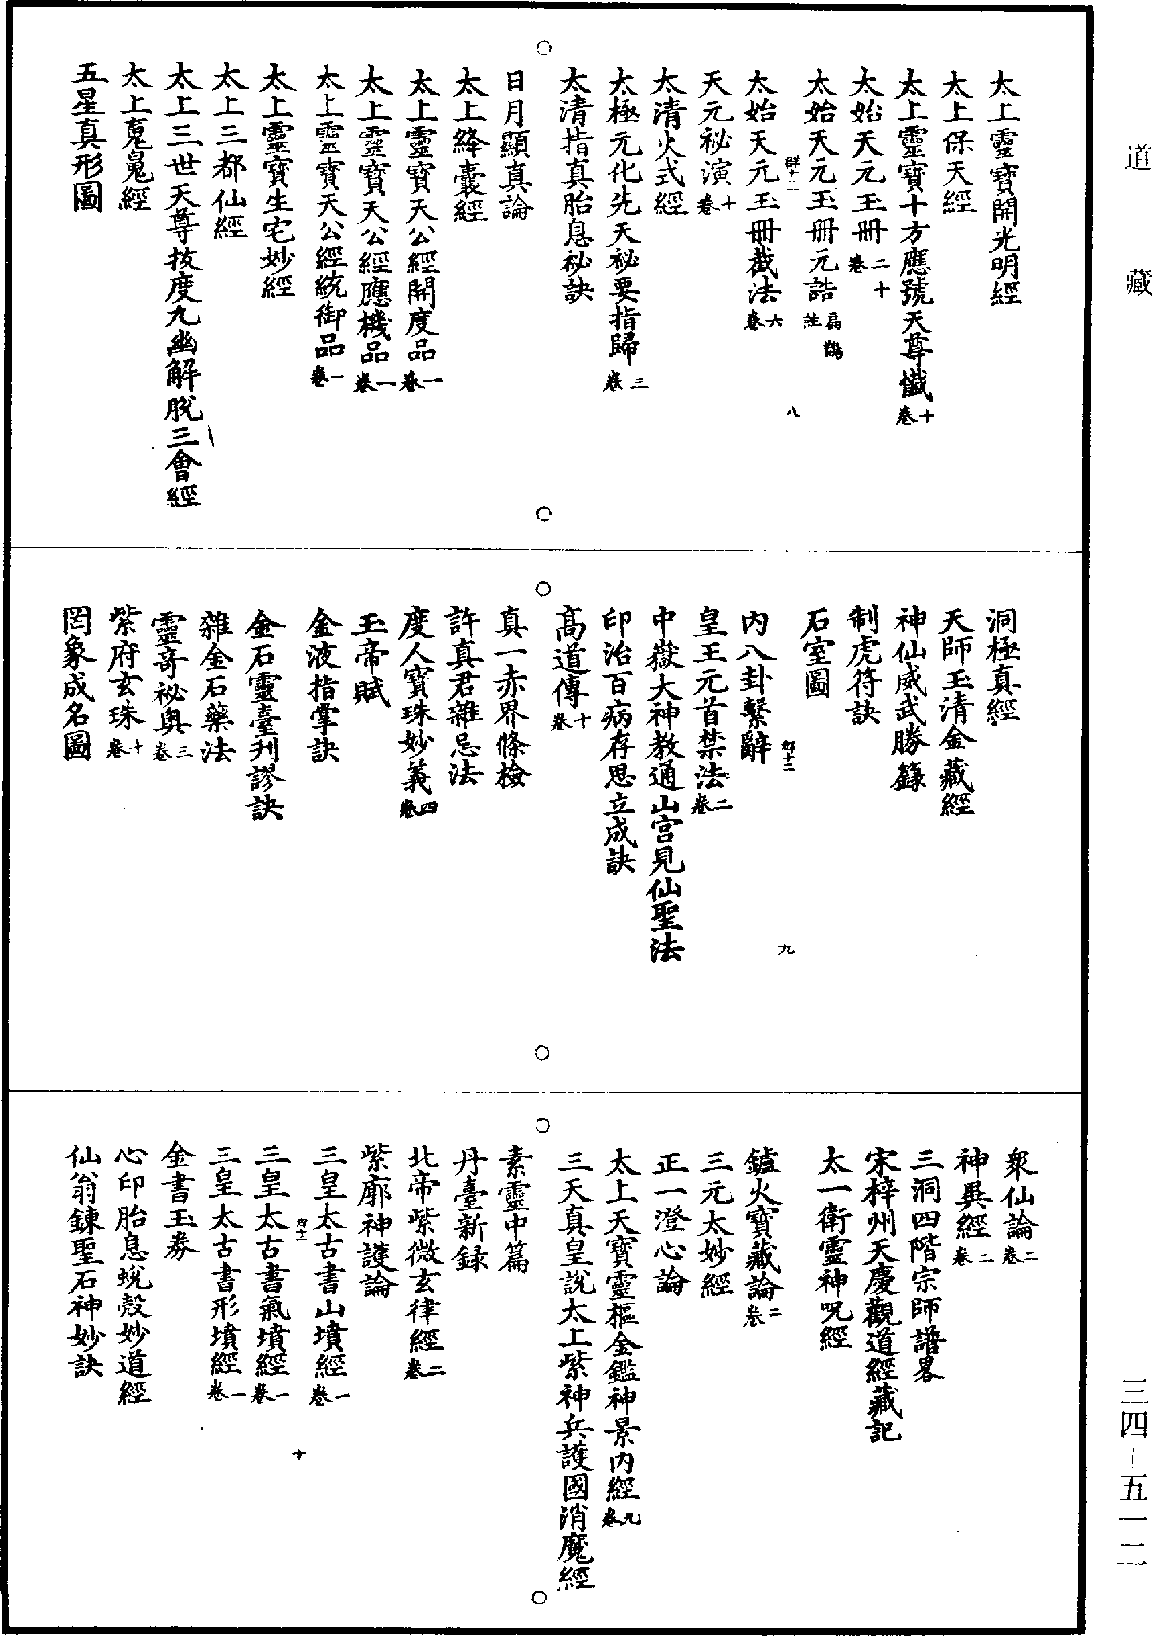 道藏
太上靈寶開光明經
太上保天經
太上靈寶十方應號天尊懺十卷
太始天元玉册二十卷
太始天元玉册元誥扁鵲註
群十二 八
太始天元玉册截法六卷
天元祕演十卷
太清火式經
太極元化先天祕要指歸三卷
太清指真胎息祕訣
日月顯真論
太上絳囊經
太上靈寶天公經開度品一卷
太上靈寶天公經應機品一卷
太上靈寶天公經統御品一卷
太上靈寶生宅妙經
太上三都仙經
太上三世天尊拔度九幽解脫三會經
太上䰟鬼經
五星真形圖
洞極真經
天師玉清金藏經
神仙威武勝籙
制虎符訣
石室圖
群十二 九
內八卦繫辭
皇王元首禁法二卷
中嶽大神教通山宮見仙聖法
印治百病存思立成訣
高道傳十卷
真一赤界條檢
許真君雜忌法
度人寶珠妙義四卷
玉帝賦
金液指掌訣
金石靈臺刋謬訣
雜金石藥法
靈奇祕奥三卷
紫府玄珠十卷
罔象成名圖
眾仙論二卷
神異經二卷
三洞四階宗師譜畧
宋梓州天慶觀道經藏記
太一衛靈神呪經
鑪火寶藏論二卷
三元太妙經
正一澄心論
太上天寶靈樞金鑑神景內經九卷
三天真皇說太上紫神兵護國消魔經
素靈中篇
丹臺新録
北帝紫微玄律經二卷
紫廓神護論
三皇太古書山墳經一卷
群十二 十
三皇太古書氣墳經一卷
三皇太古書形墳經一卷
金書玉券
心印胎息蛻殼妙道經
仙翁鍊聖石神妙訣
三四－五一二